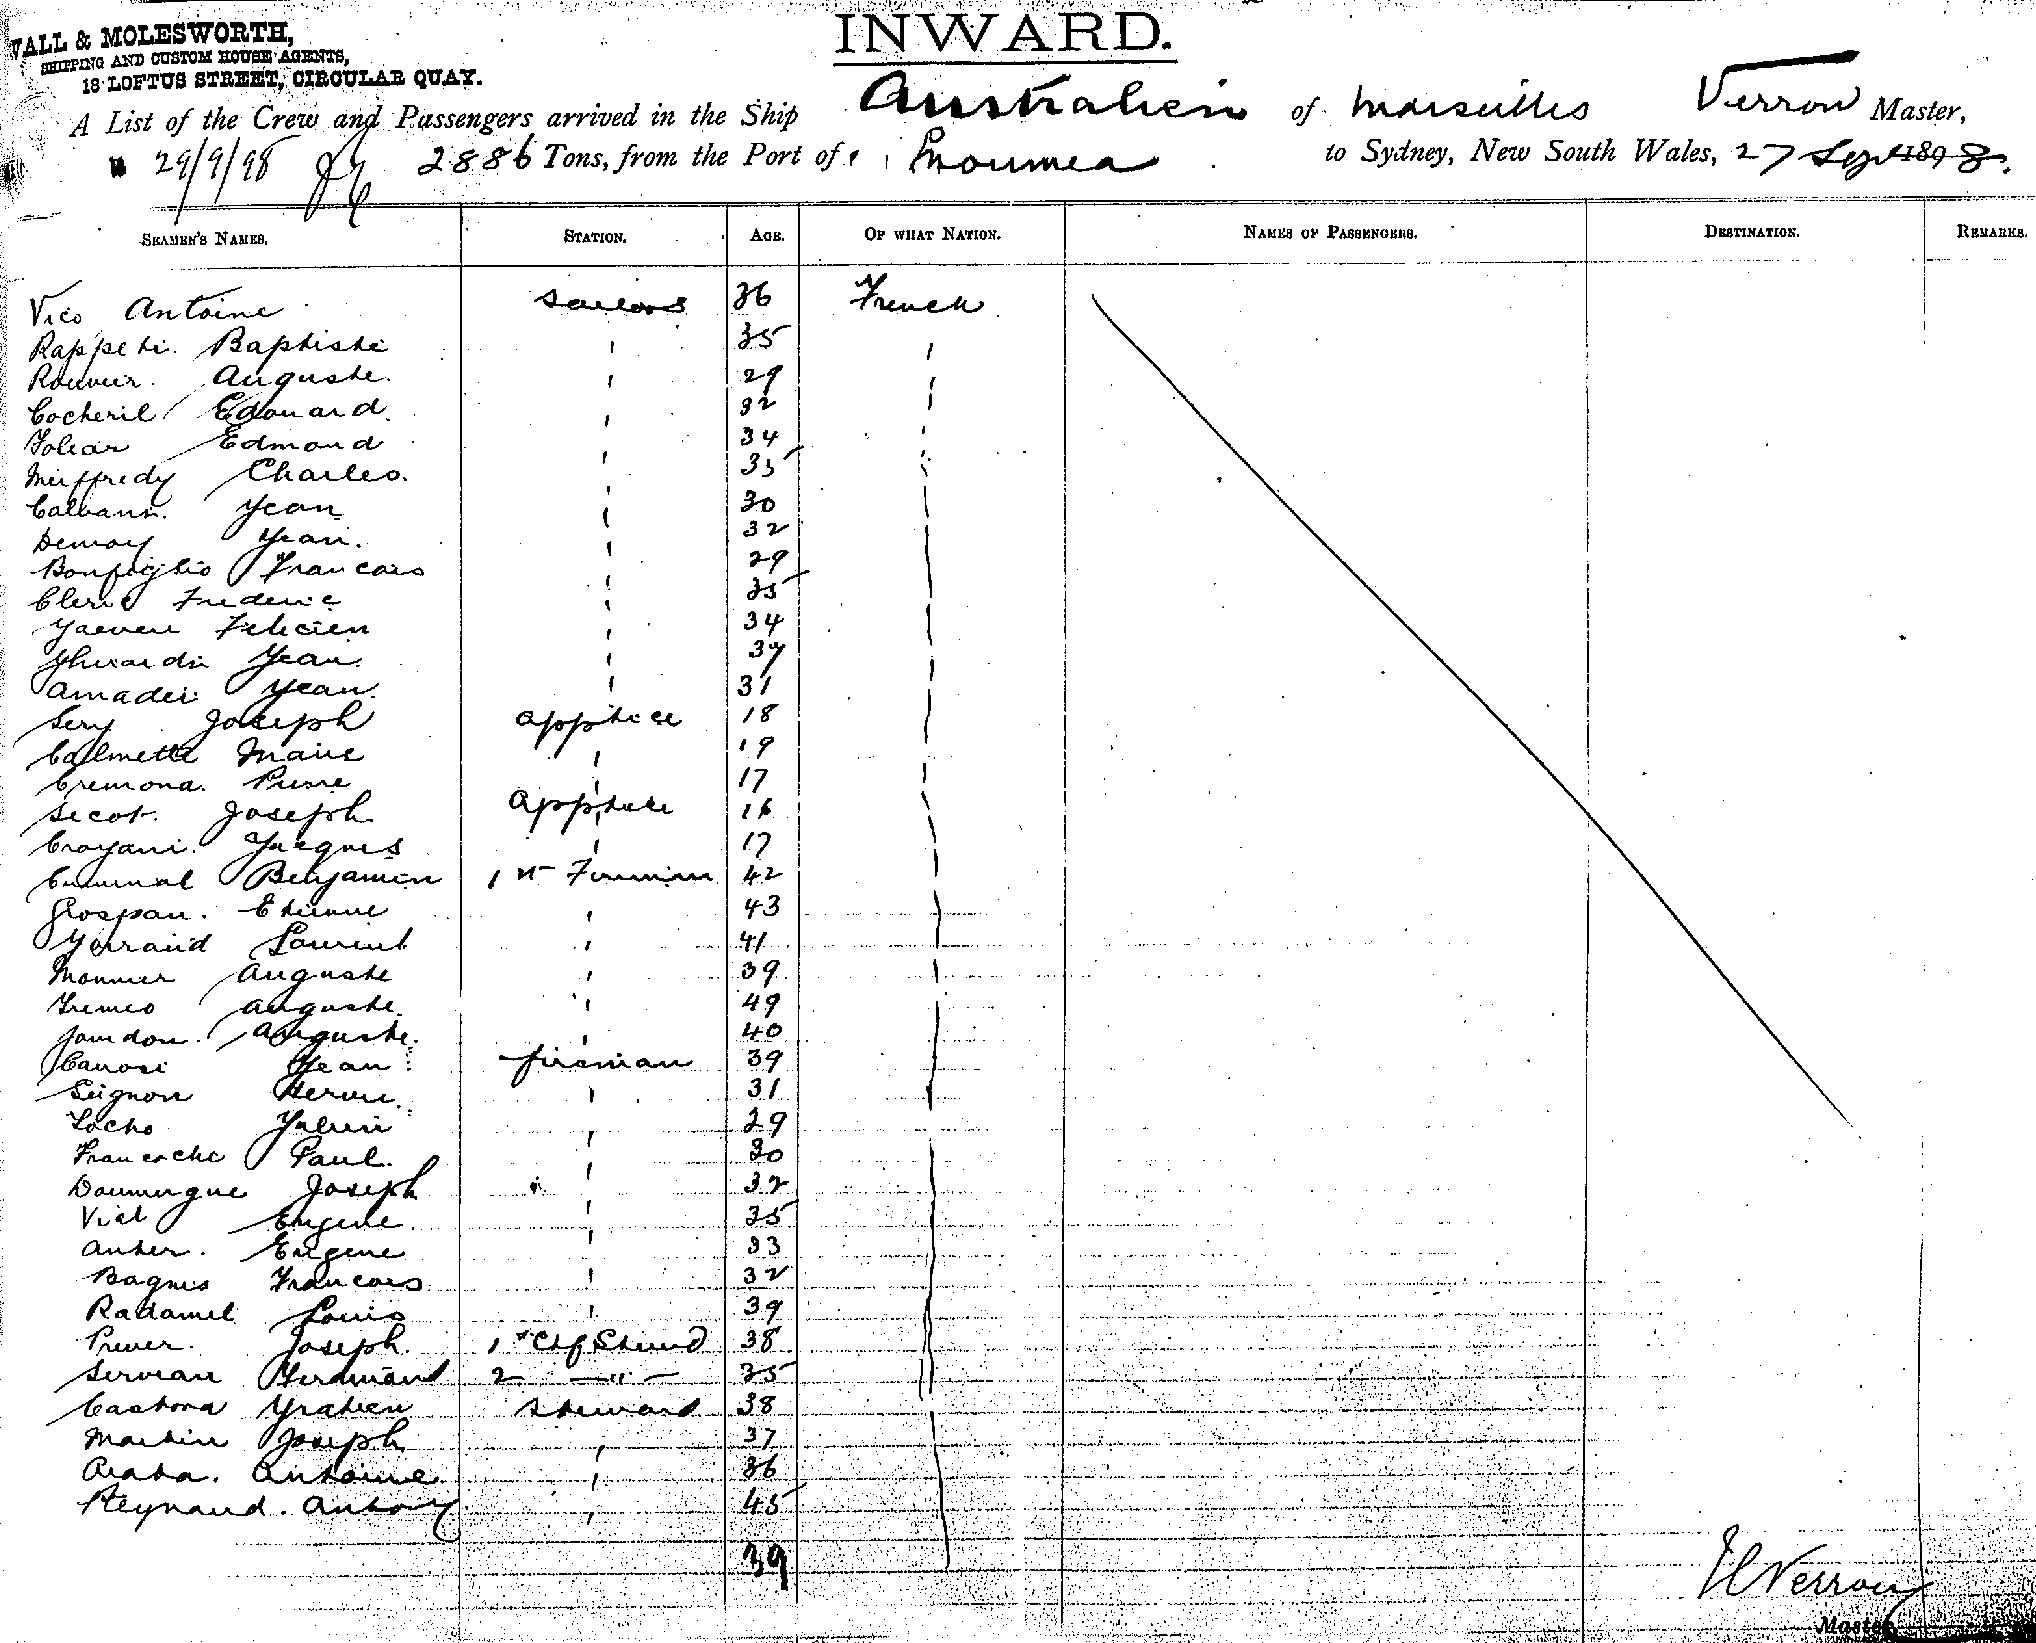 WALL & MOLESWORTH,
SHIPPING AND CUSTOM HOUSE AGENTS,
18 LOFTUS STREET, CIRCULAR QUAY.
INWARD.
A List of the Crew and Passengers arrived in the Ship Australien of Marseilles Verron Master,
29/9/98 2886 Tons, from the Port of Noumea to Sydney, New South Wales, 27 Sept 1898.
SEAMEN'S NAMES. STATION. AGE. OF WHAT NATION. NAMES OF PASSENGERS. DESTINATION. REMARKS.
Vico Antoine Sailors 36 French
Rappeti Baptiste " 35 "
Auguste " 29 "
Cocheril Edouard " 32 "
Edmond " 34 "
Meiffredy Charles " 35 "
Jean " 30 "
Demay Jean " 32 "
Bonfiglio Francois " 29 "
Cleric Frederic " 35 "
Felicien " 34 "
Gherardi Jean " 37 "
Amadei Jean " 31 "
Sery Joseph apptice 18 "
Calmette Marie " 19 "
Cremona Pierre " 17 "
Secot Joseph Apptice 16 "
Jacques " 17 "
Benjamin 1st Fireman 42 "
Grospan Etienne " 43 "
Laurent " 41 "
Monnier Auguste " 39 "
Auguste " 49 "
Jourdon Auguste " 40 "
Canosi Jean fireman 39 "
Seignon " 31 "
Locho " 29 "
Paul " 30 "
Doumergue Joseph " 32 "
Vial Eugene " 35 "
Eugene " 33 "
Bagnis Francois " 32 "
Radamel Louis " 39 "
Joseph 1st Chf Steward 38 "
Servian Ferdinand 2 —"— 35 "
Castona Gratien Steward 38 "
Martin Joseph " 37 "
Antoine " 36 "
Reynaud Antony " 45 "
39
Verron
Master